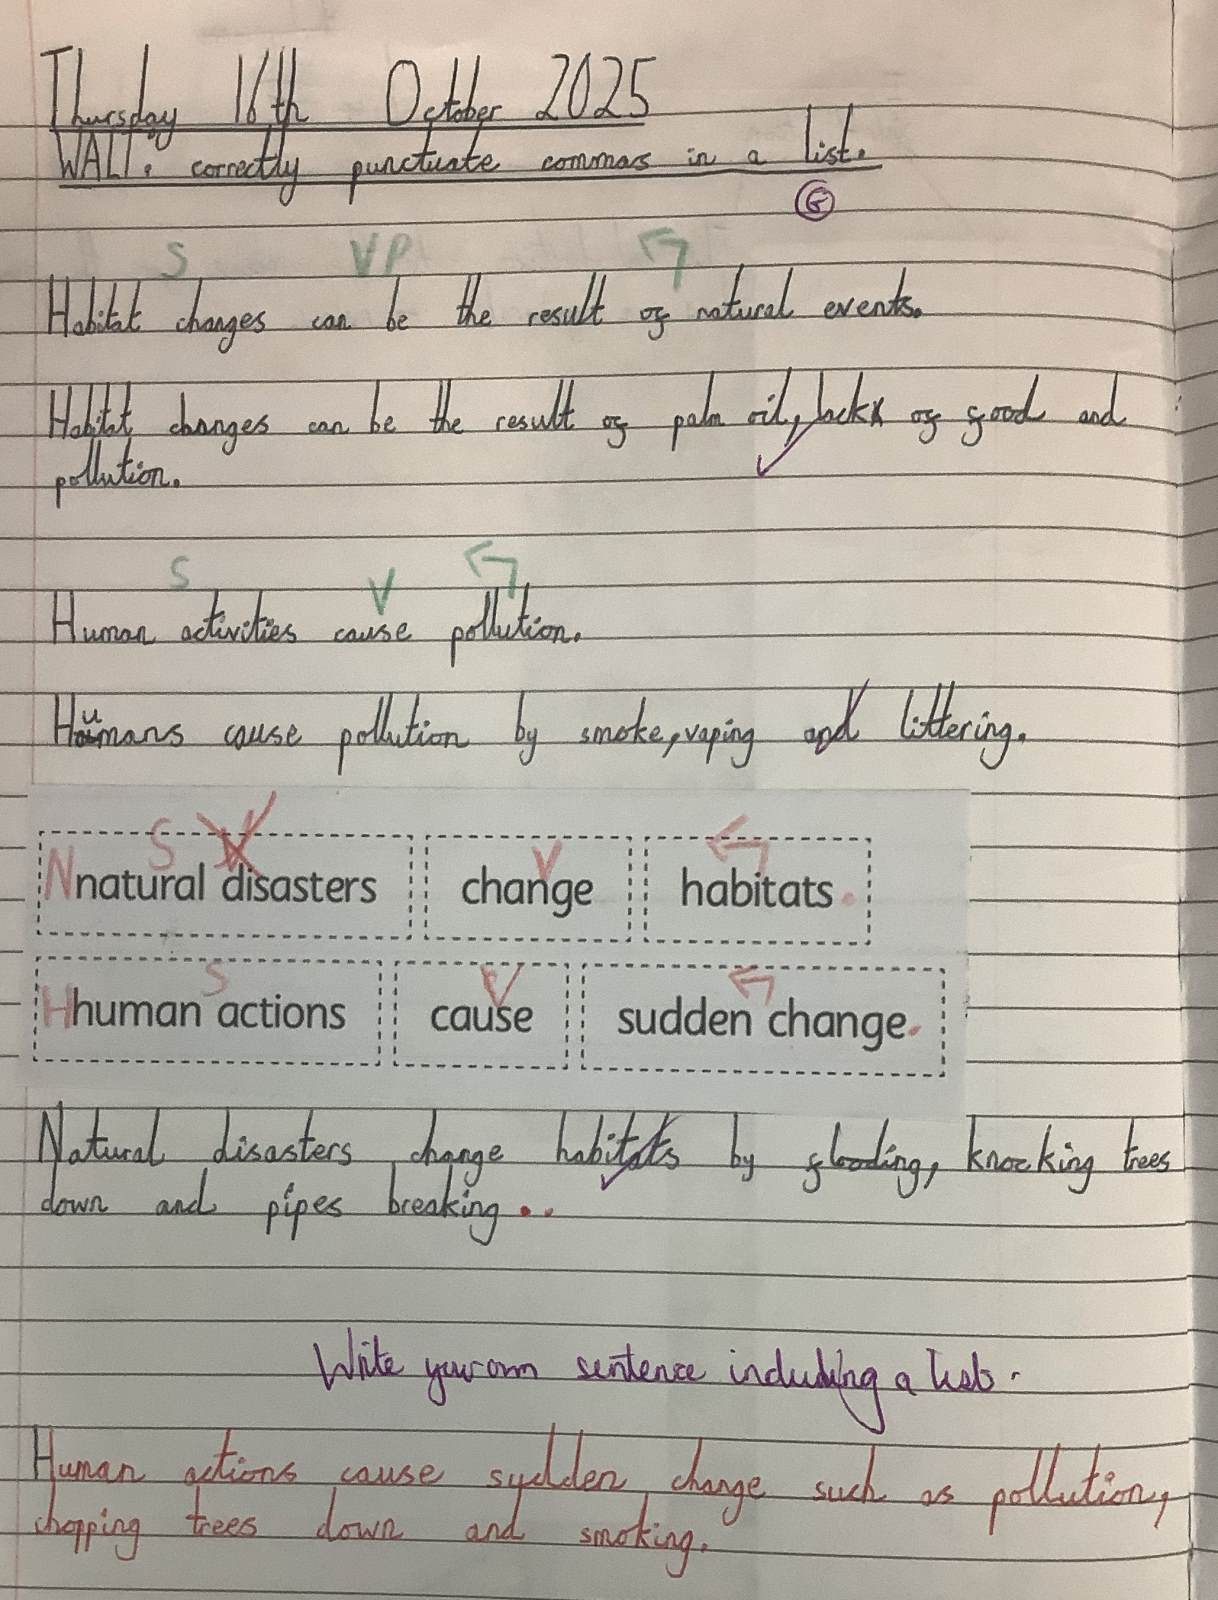 Thursday 16th October 2025
WALT: correctly punctuate commas in a list.
G
S VP
Habitat changes can be the result of natural events.
Habitat changes can be the result of palm oil, lack of food and
pollution.
S V
Human activities cause pollution.
Humans cause pollution by smoke, vaping and littering.
S V
Nnatural disasters change habitats.
S V
Hhuman actions cause sudden change.
Natural disasters change habitats by flooding, knocking trees
down and pipes breaking..
Write your own sentence including a list.
Human actions cause sudden change such as pollution,
chopping trees down and smoking.